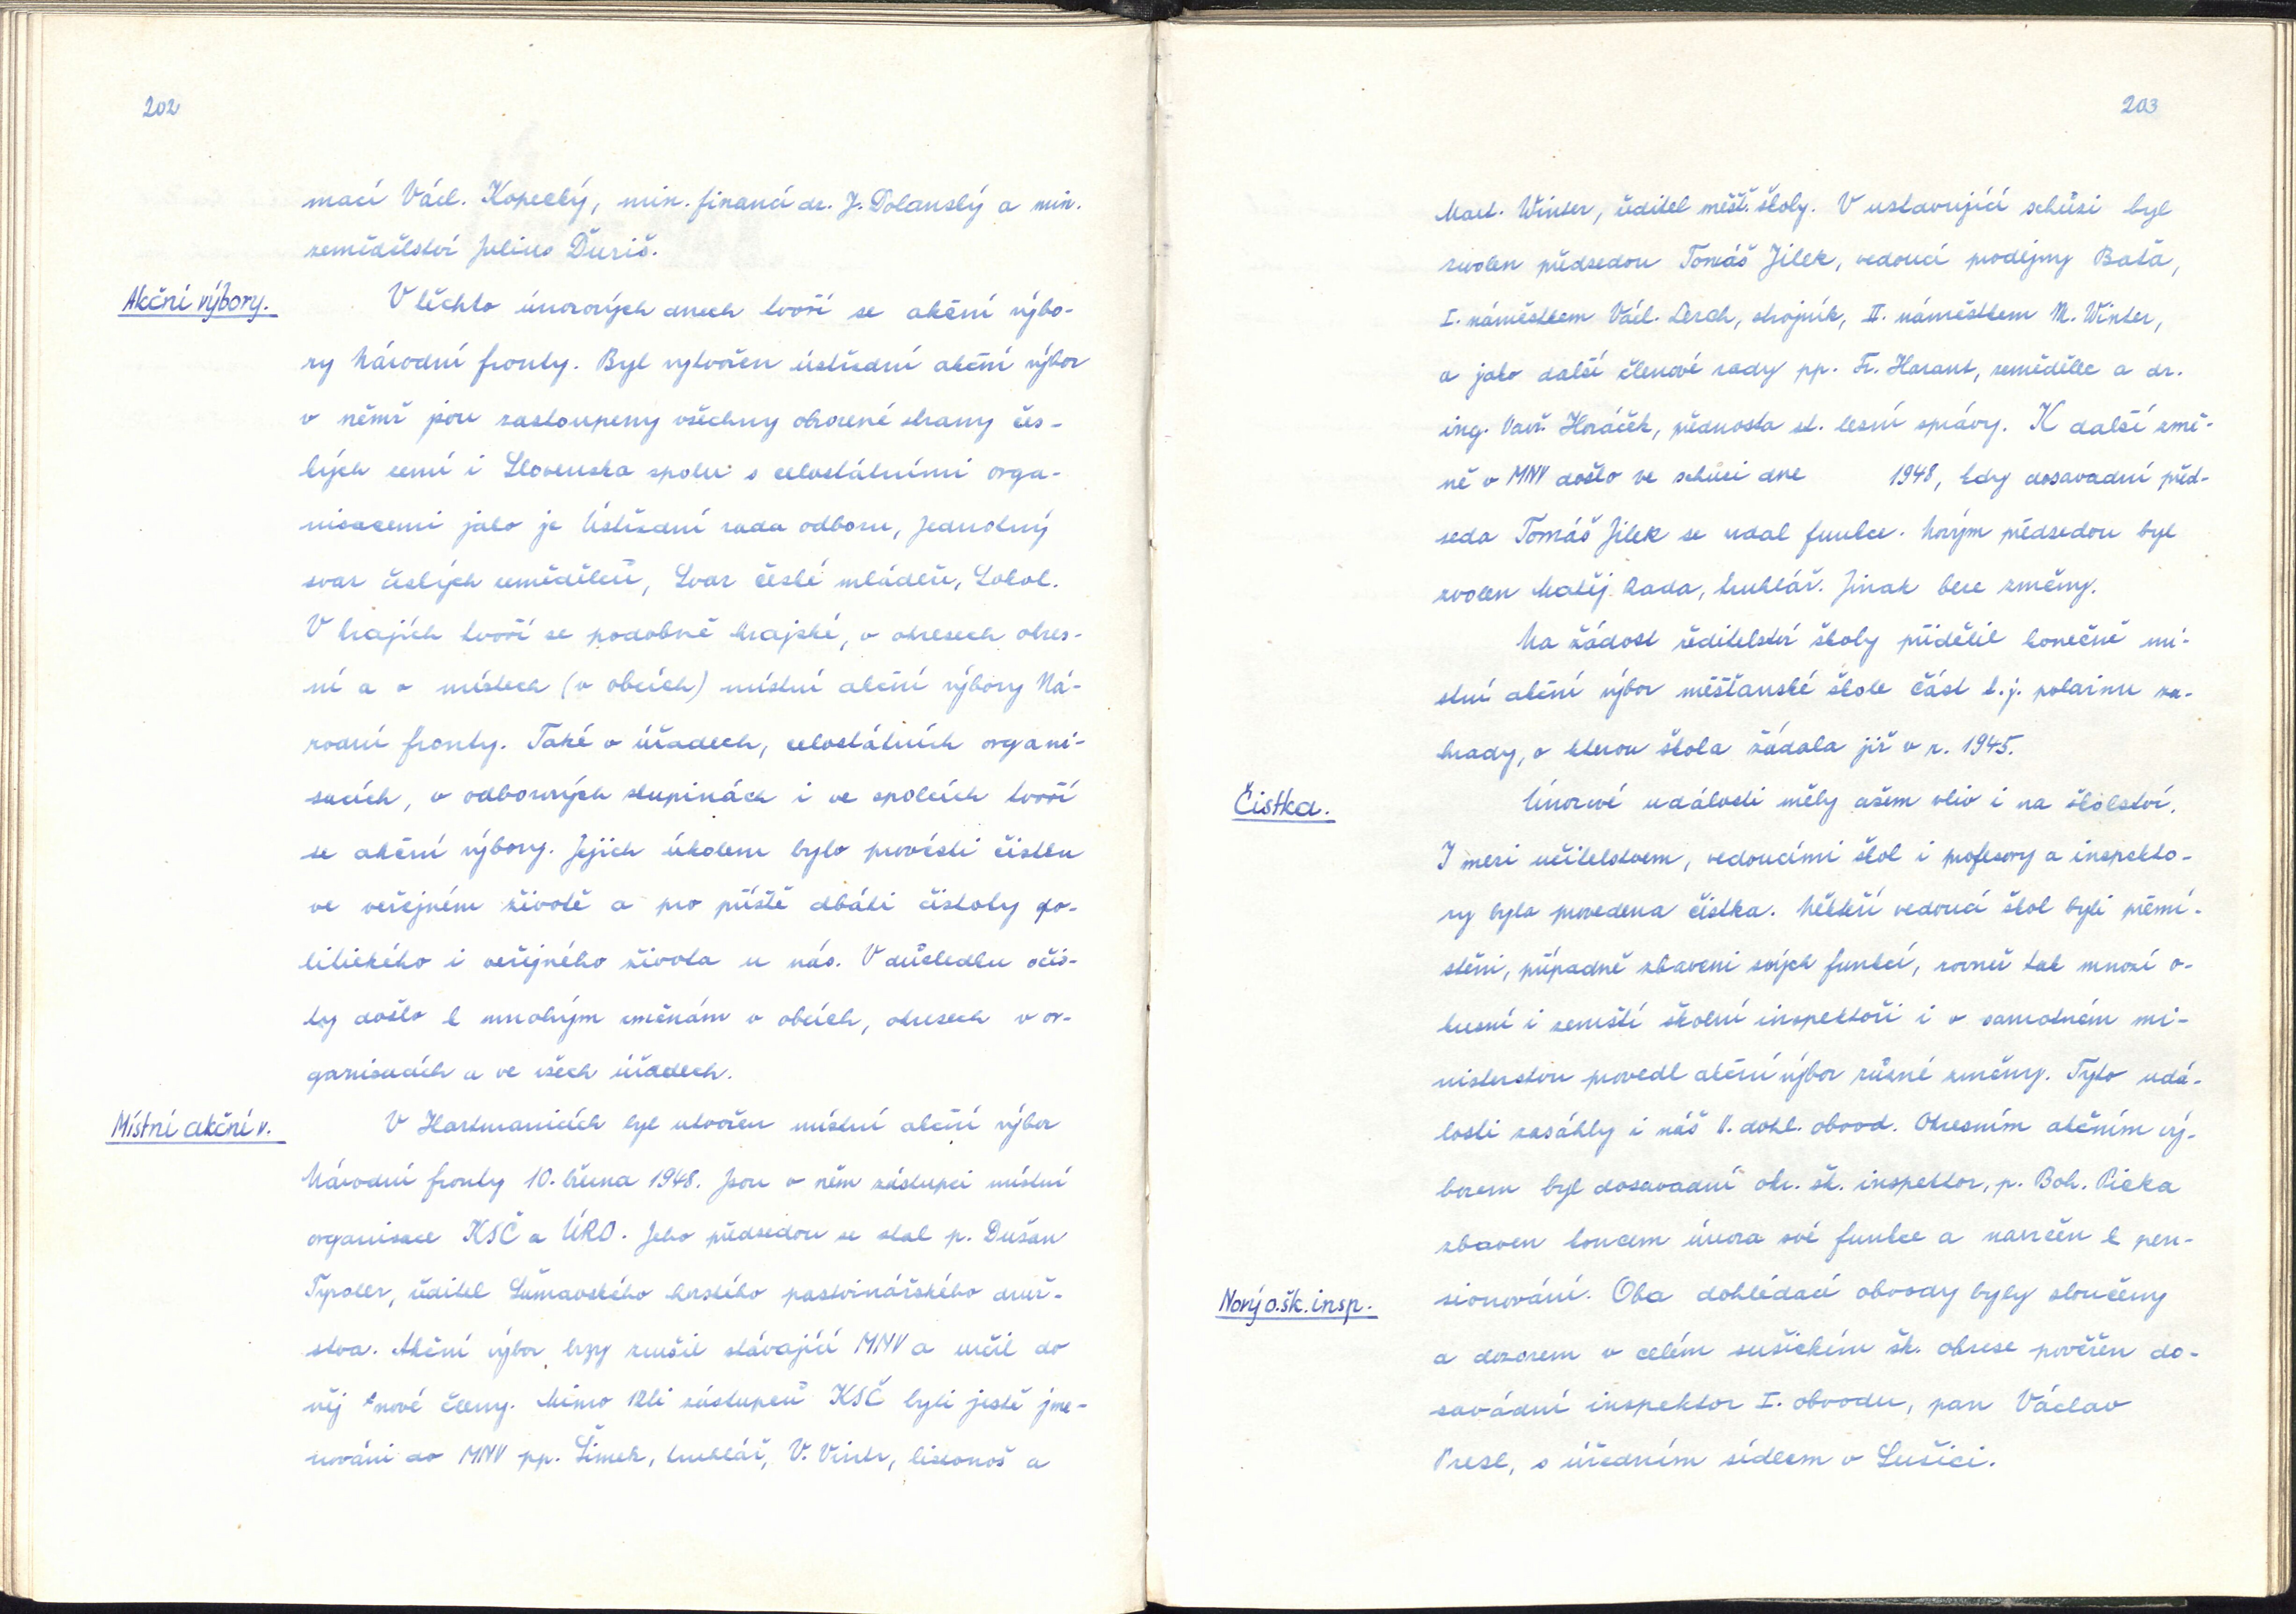 202
maci Václ. Kopecký, min. financí dr. J. Dolanský a min.
zemědělství Julius Ďuriš.
Akční výbory.
V těchto únorových dnech tvoří se akční výbo-
ry Národní fronty. Byl vytvořen ústřední akční výbor
v němž jsou zastoupeny všechny obrozené strany čes-
kých zemí i Slovenska spolu s celostátními orga-
nisacemi jako je Ústřední rada odboru, Jednotný
svaz českých zemědělců, Svaz české mládeže, Sokol.
V krajích tvoří se podobně krajské, v okresech okres-
ní a v místech (v obcích) místní akční výbory Ná-
rodní fronty. Také v úřadech, celostátních organi-
sacích, v odborových skupinách i ve spolcích tvoří
se akční výbory. Jejich úkolem bylo provésti čistku
ve veřejném životě a pro příště dbáti čistoty po-
litického i veřejného života u nás. V důsledku očis-
ty došlo k mnohým změnám v obcích, okresech v or-
ganisacích a ve všech úřadech.
Místní akční v.
V Hartmanicích byl utvořen místní akční výbor
Národní fronty 10. března 1948. Jsou v něm zástupci místní
organisace KSČ a ÚRO. Jeho předsedou se stal p. Dušan
Tyroler, ředitel Šumavského horského pastvinářského druž-
stva. Akční výbor brzy zrušil stávající MNV a určil do
něj nové členy. Mimo 12ti zástupců KSČ byli ještě jme-
nováni do MNV pp. Šimek, truhlář, V. Vintr, listonoš a
203
Mart. Winter, ředitel měšť. školy. V ustavující schůzi byl
zvolen předsedou Tomáš Jílek, vedoucí prodejny Baťa,
I. náměstkem Václ. Lerch, strojník, II. náměstkem M. Winter,
a jako další členové rady pp. Fr. Harant, zemědělec a dr.
ing. Vavř. Horáček, přednosta st. lesní správy. K další změ-
ně v MNV došlo ve schůzi dne 1948, kdy dosavadní před-
seda Tomáš Jílek se vzdal funkce. Novým předsedou byl
zvolen Matěj Rada, truhlář. Jinak beze změny.
Na žádost ředitelství školy přidělil konečně mí-
stní akční výbor měšťanské škole část t.j. polovinu za-
hrady, o kterou škola žádala již v r. 1945.
Čistka.
Únorové události měly ovšem vliv i na školství.
I mezi učitelstvem, vedoucími škol i profesory a inspekto-
ry byla provedena čistka. Někteří vedoucí škol byli přemí-
stěni, případně zbaveni svých funkcí, rovněž tak mnozí o-
kresní i zemští školní inspektoři i v samotném mi-
nisterstvu provedl akční výbor různé změny. Tyto udá-
losti zasáhly i náš II. dohl. obvod. Okresním akčním vý-
borem byl dosavadní okr. šk. inspektor, p. Boh. Picka
zbaven koncem února své funkce a navržen k pen-
sionování. Oba dohlédací obvody byly sloučeny
Nový o. šk. insp.
a dozorem v celém sušickém šk. okrese pověřen do-
savádní inspektor I. obvodu, pan Václav
Presl, s úředním sídlem v Sušici.